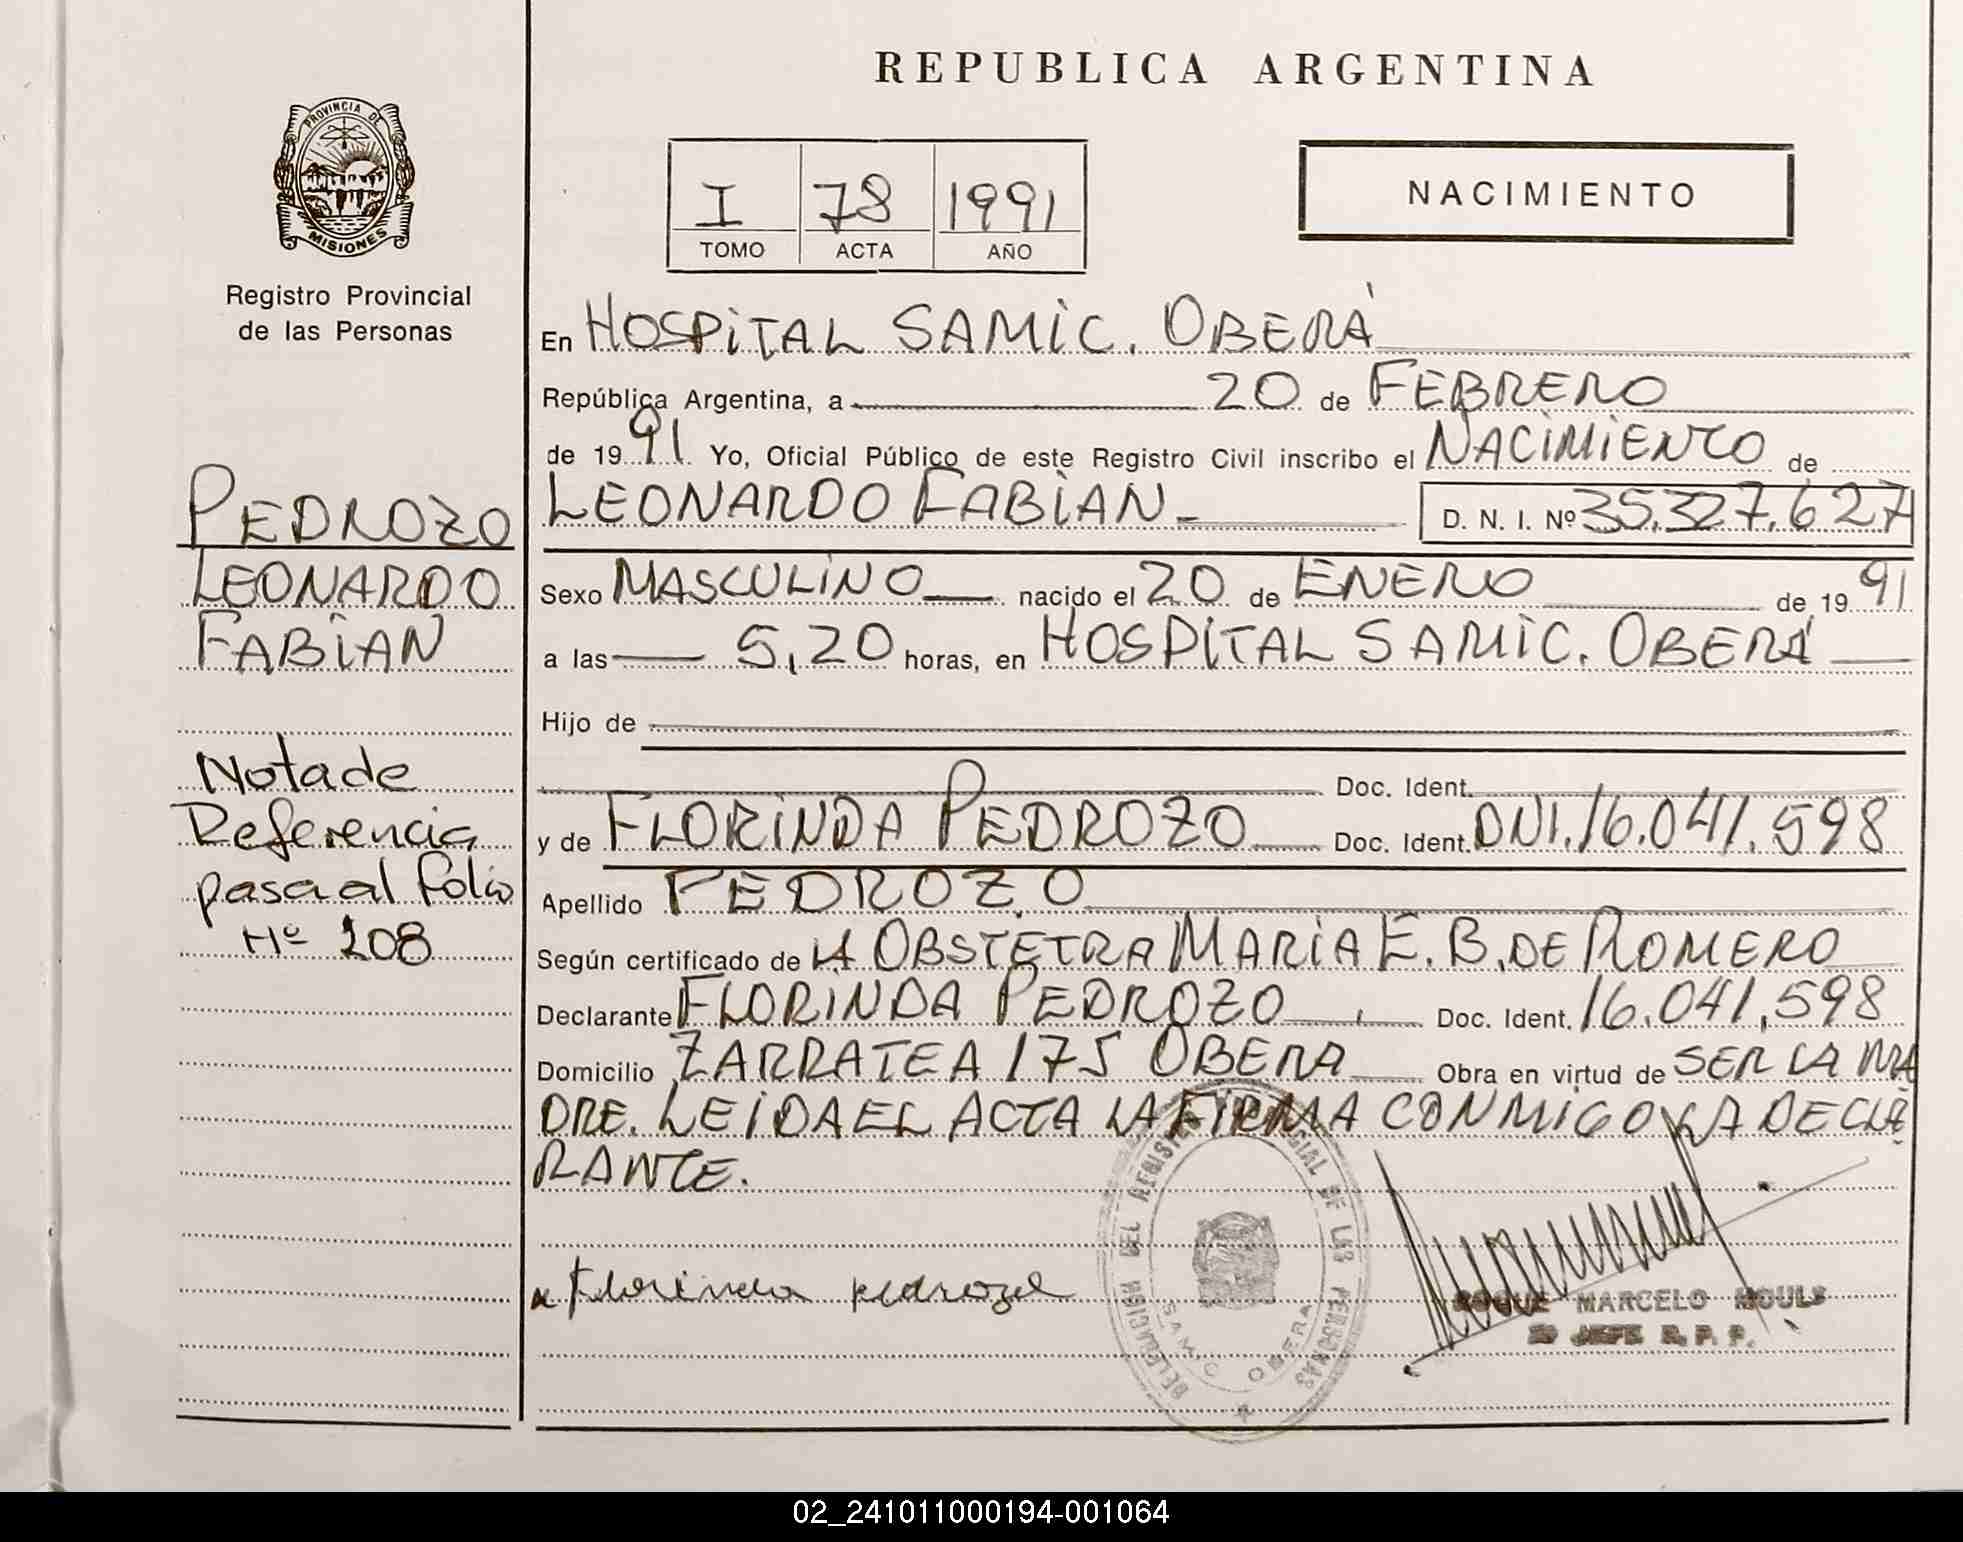 REPUBLICA ARGENTINA
PROVINCIA DE
MISIONES
Registro Provincial
de las Personas
I 78 1991
TOMO ACTA AÑO
NACIMIENTO
PEDROZO
LEONARDO
FABIAN
Nota de
Referencia
pasa al folio
Nº 208
En HOSPITAL SAMIC. OBERÁ
República Argentina, a 20 de FEBRERO
de 1991 Yo, Oficial Público de este Registro Civil inscribo el NACIMIENTO de
LEONARDO FABIAN D. N. I. Nº 35.327.627
Sexo MASCULINO nacido el 20 de ENERO de 1991
a las 5,20 horas, en HOSPITAL SAMIC. OBERÁ
Hijo de
Doc. Ident.
y de FLORINDA PEDROZO Doc. Ident. DNI.16.041.598
Apellido PEDROZO
Según certificado de LA OBSTETRA MARIA E. B. DE ROMERO
Declarante FLORINDA PEDROZO Doc. Ident. 16.041.598
Domicilio ZARRATEA 175 OBERA Obra en virtud de SER LA MA
DRE. LEIDA EL ACTA LA FIRMA CONMIGO LA DECLA
RANTE.
Florinda pedrozo
DELEGACION DEL REGISTRO PROVINCIAL DE LAS PERSONAS
SAMIC OBERA
ROQUE MARCELO
JEFE R. P. P.
02_241011000194-001064